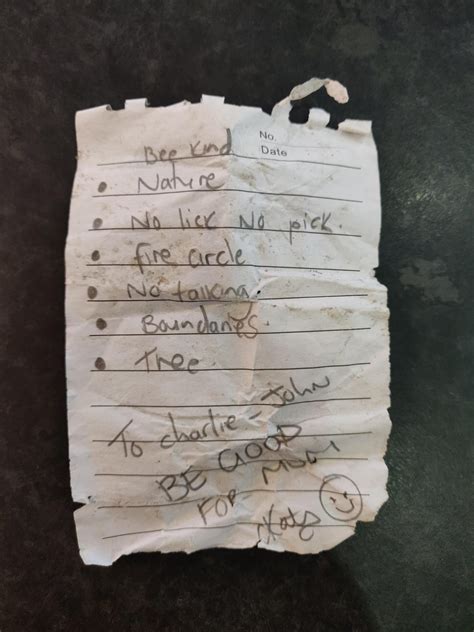 No.
Date
Bee Kind
• Nature
• No lick No pick.
• fire circle
• No talking.
• Boundarys.
• Tree
To Charlie - John
BE GOOD
FOR MUM